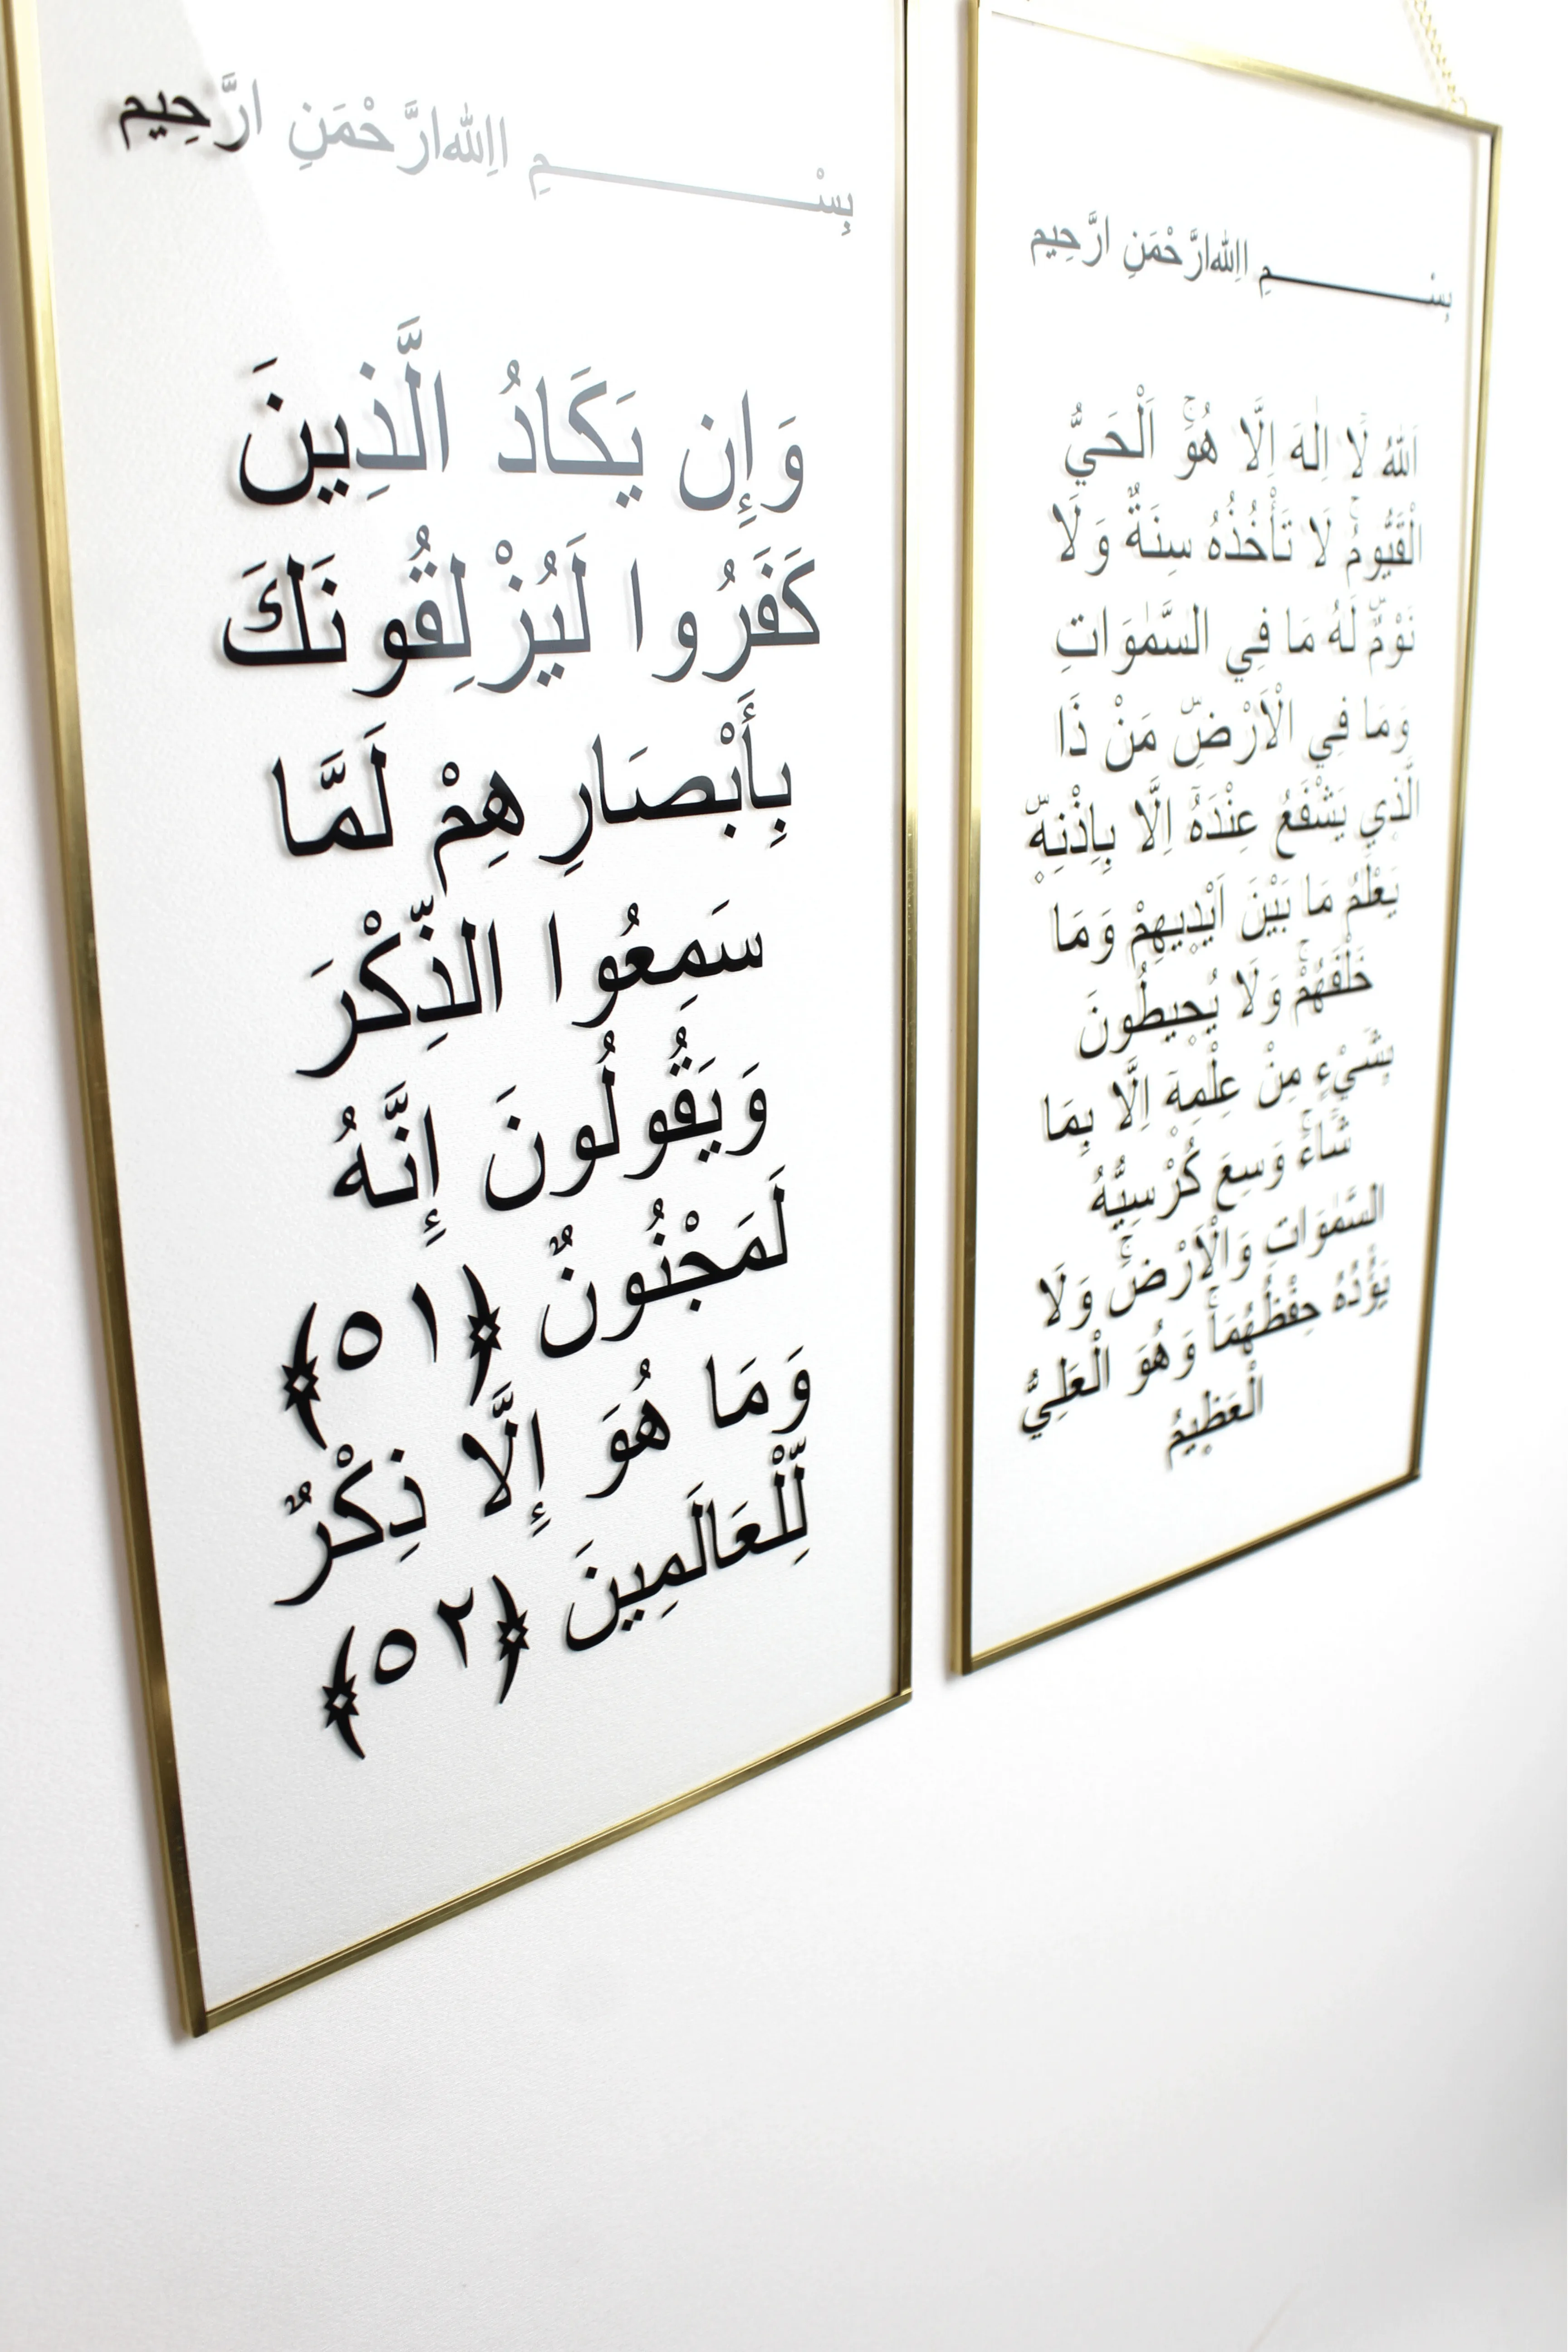 بِسْـــــــــمِ االلهِ ارَّحْمَنِ ارَّحِيم
وَإِن يَكَادُ الَّذِينَ
كَفَرُوا لَيُزْلِقُونَكَ
بِأَبْصَارِهِمْ لَمَّا
سَمِعُوا الذِّكْرَ
وَيَقُولُونَ إِنَّهُ
لَمَجْنُونٌ ﴿٥١﴾
وَمَا هُوَ إِلَّا ذِكْرٌ
لِّلْعَالَمِينَ ﴿٥٢﴾
بِسْـــــــــمِ االلهِ ارَّحْمَنِ ارَّحِيم
اَللهُ لَٓا اِلٰهَ اِلَّا هُوَۚ اَلْحَيُّ
الْقَيُّومُۚ لَا تَأْخُذُهُ سِنَةٌ وَلَا
نَوْمٌۜ لَهُ مَا فِي السَّمٰوَاتِ
وَمَا فِي الْاَرْضِۜ مَنْ ذَا
الَّذ۪ي يَشْفَعُ عِنْدَهُٓ اِلَّا بِاِذْنِه۪ۜ
يَعْلَمُ مَا بَيْنَ اَيْد۪يهِمْ وَمَا
خَلْفَهُمْۚ وَلَا يُح۪يطُونَ
بِشَيْءٍ مِنْ عِلْمِه۪ٓ اِلَّا بِمَا
شَٓاءَۚ وَسِعَ كُرْسِيُّهُ
السَّمٰوَاتِ وَالْاَرْضَۚ وَلَا
يَؤُ۫دُهُ حِفْظُهُمَاۚ وَهُوَ الْعَلِيُّ
الْعَظ۪يمُ